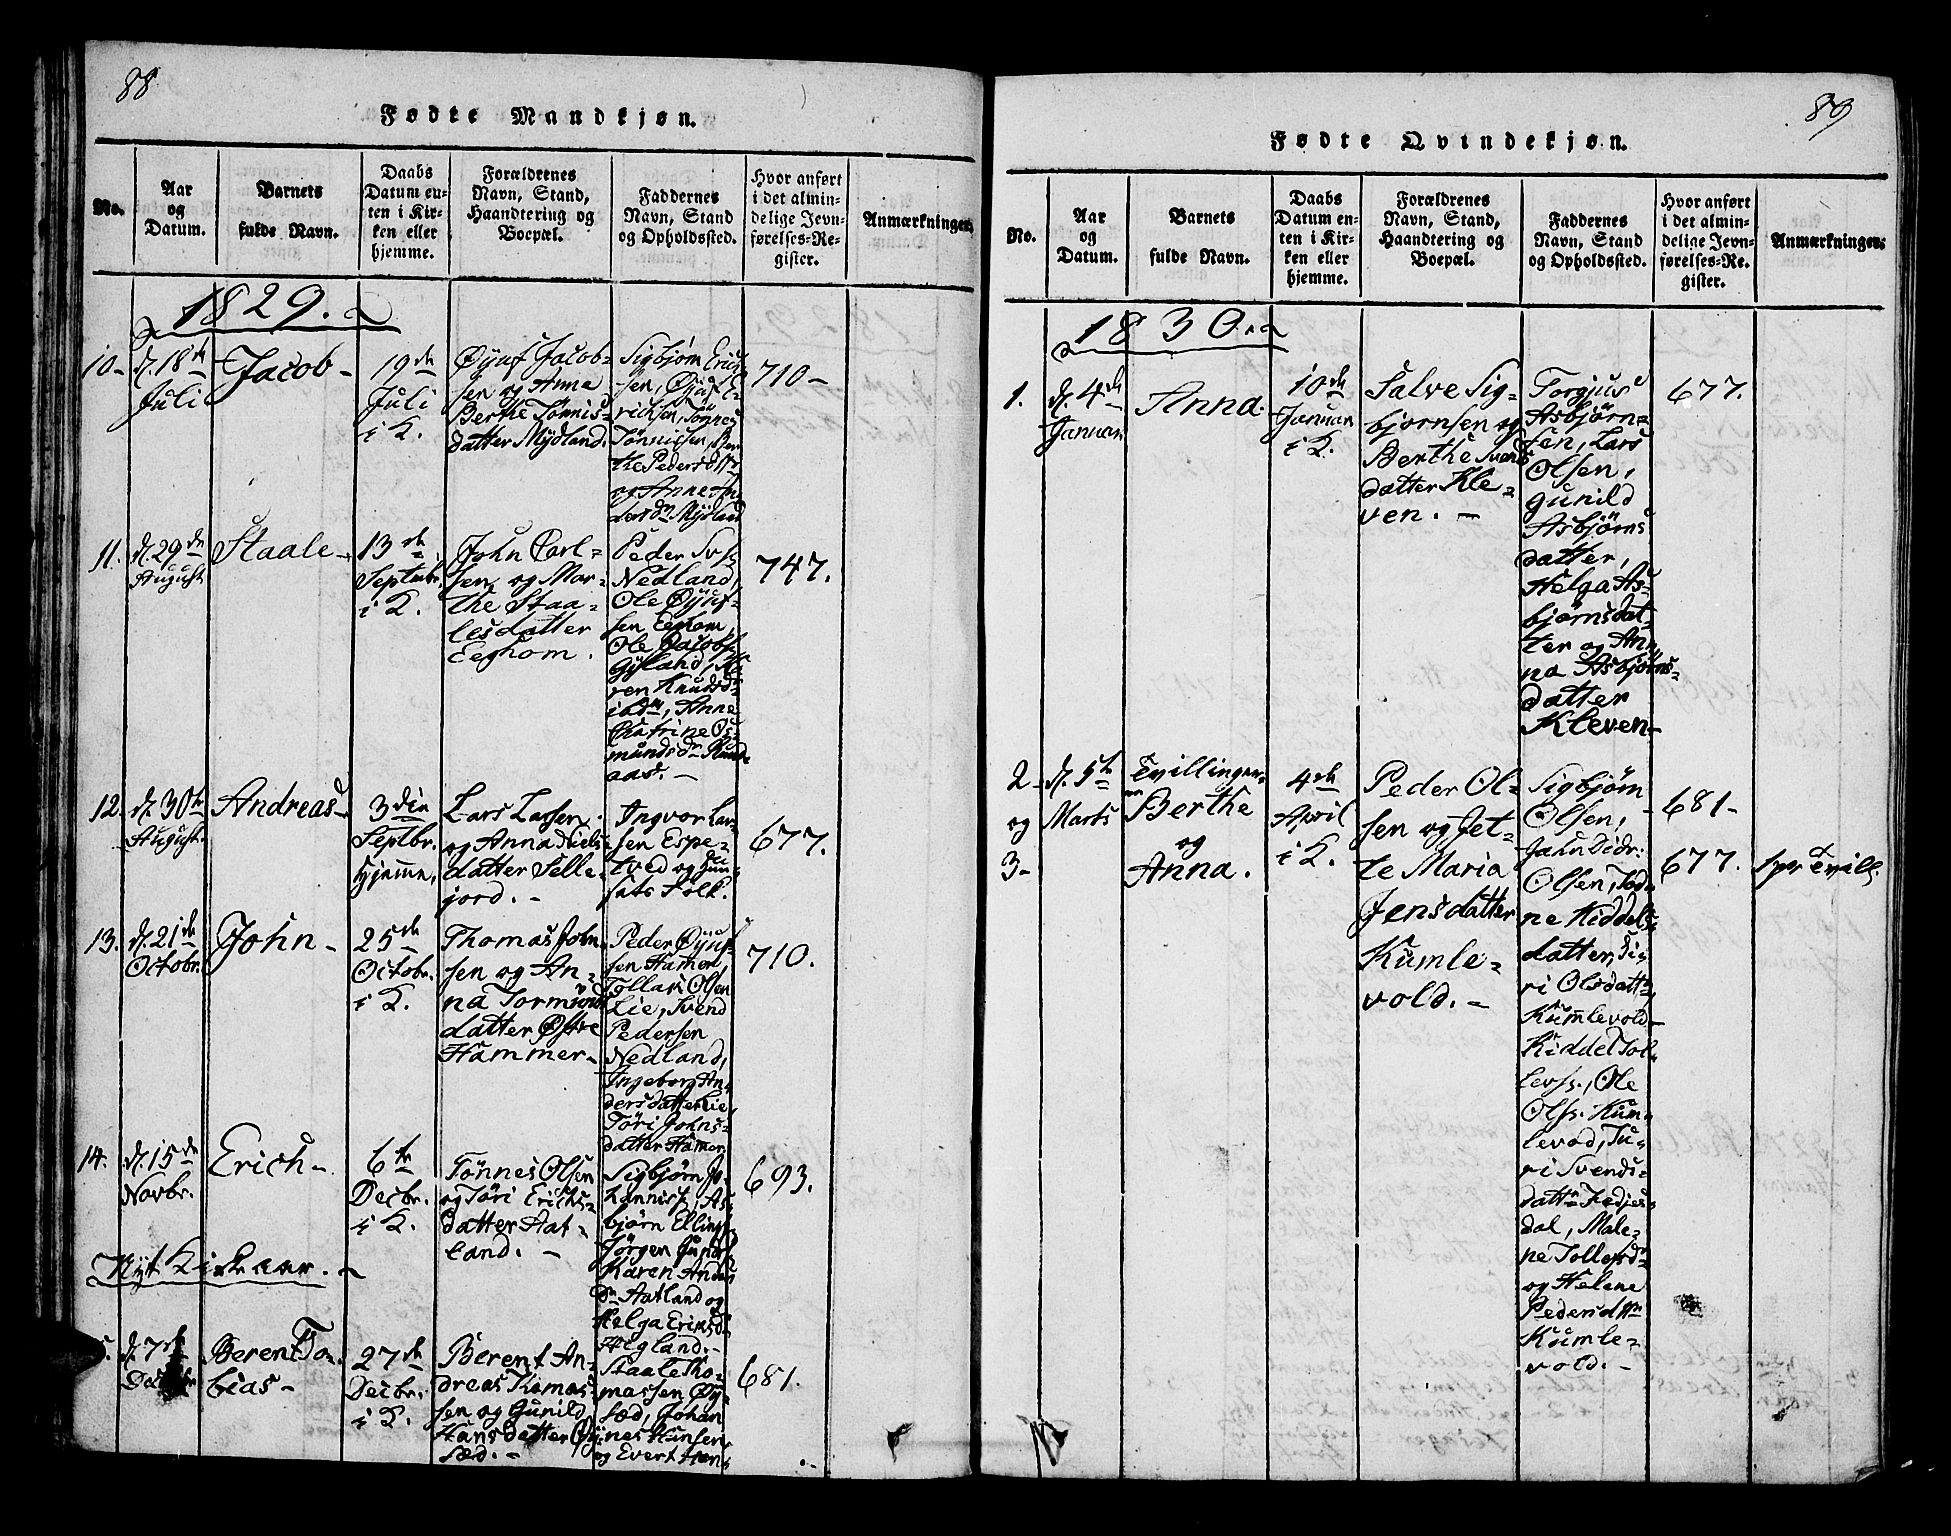 88
Fødte Mandkjøn.
No.
Aar
og
Datum.
Barnets
fulde Navn.
Daabs
Datum en-
ten i Kir-
ken eller
hjemme.
Forældrenes
Navn, Stand,
Haandtering og
Boepæl.
Faddernes
Navn, Stand
og Opholdssted.
Hvor anført
i det almin-
delige Jevn-
førelses-Re-
gister.
Anmærkninger.
1829.
10-
d. 18de
Juli
Jacob-
19de
Juli
i K.
Øyuf Jacob-
sen og Anna
Berthe Tønnis-
datter Mydland.
Sigbjørn Erich-
sen, Øyuf E-
richsen, Tønnes
Tønnissen, Ber
the Pedersdttr
og Anne An-
dersdr Mydland
710-
11.
d. 29de
August
Staale-
13de
Septembr.
i K.
John Carl-
sen og Mar-
the Staa-
lesdatter
Eeghom.
Peder Svs.
Nedland,
Ole Øyuf-
sen Eeghom,
Ole Jacobs.
Gyland,
ren Knudsdr
ibdm, Anne
Catrine Os-
mundsdr Rund-
aas.-
747.
12.
d. 30te
August.
Andreas-
3die
Septbr.
hjemme,
Lars Larsen
og Anna Niels-
datter Selle-
jord.-
Ingvor Lar-
sen Espe-
tved og Huu-
sets Folk.
677.
13.
d. 21de
Octobr.
John-
25de
Octobr.
i K.
Thomas John-
sen og An-
na Tormunds
datter Østre
Hammer-
Peder Øyuf-
sen Hamer
Tollak Olsen
Lie, Svend
Pedersen
Nedland,
Ingeborg An-
dersdatter Lie,
Tøri Johns-
datter Hamer
710.
14.
d. 15de
Novbr.
Erich-
6te
Decbr.
i K.
Tønnes Olsen
og Tøri Erichs-
datter Aat-
land.-
Sigbjørn Jo-
hanniss, As-
bjørn Ellings.
Jørgen
Karen Anders
dr Aatland og
Helga Ericsd.
Hegland.-
693.
Nyt Kirkeaar.
d. 7de
Decbr
Berent To-
bias-
27de
Decbr.
i K.
Berent An-
dreas Tomas-
sen og Gunild
Hansdatter Øy-
sæd.-
Staale Tho-
massen Øy-
sæd, Johan
nes Hansen
og Evert Han-
681.
89
Fødte Qvindekjøn.
No.
Aar
og
Datum.
Barnets
fulde Navn.
Daabs
Datum en-
ten i Kir-
ken eller
hjemme.
Forældrenes
Navn, Stand,
Haandtering og
Boepæl.
Faddernes
Navn, Stand
og Opholdssted.
Hvor anført
i det almin-
delige Jevn-
førelses-Re-
gister.
Anmærkninger.
1830.
1.
d. 4de
Januar
Anna.
10de
Januar
i K.
Salve Sig-
bjørnsen og
Berthe Svends
datter Kle-
ven.-
Torgjus
Asbjørn-
sen, Lars
Olsen,
Gunild
Asbjørns
datter,
Helga As-
bjørnsdat-
ter og An-
na Asbjørns-
datter
Kleven-
677.
2-
og
3-
d. 5te
Marts
Tvillinger-
Berthe
og
Anna.
4de
April
i K.
Peder Ol-
sen og Jet-
te Maria
Jensdatter
Kumle-
vold.-
Sigbjørn
Olsen,
Jahn Didr:
Olsen, Tod-
ne Kiddels-
datter, Si-
ri Olsdattr
Kumlevold-
Kiddel Tol-
levss., Ole
Olss. Kum-
levod, Tu-
ri Svends-
dattr Fedjes-
dal, Male-
ne Tollefsdr
og Helene
Pedersdttr
Kumle-
vold.-
681-
677.